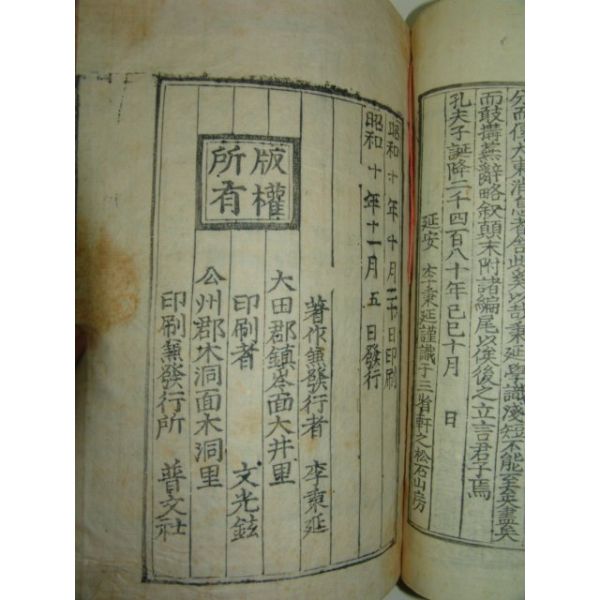 分而使大東消息者舍此奚以哉秉延學識淺短不能至矣盡矣
而敢搆蕪辭略叙顛末附諸編尾以俟後之立言君子焉
孔夫子誕降二千四百八十年己巳十月 日
延安 李秉延謹識于三省軒之松石山房
昭和十年十月二十日印刷
昭和十年十一月五日發行
著作兼發行者 李秉延
大田郡鎮岑面大井里
印刷者 文光鉉
公州郡木洞面木洞里
印刷兼發行所 普文社
版權
所有